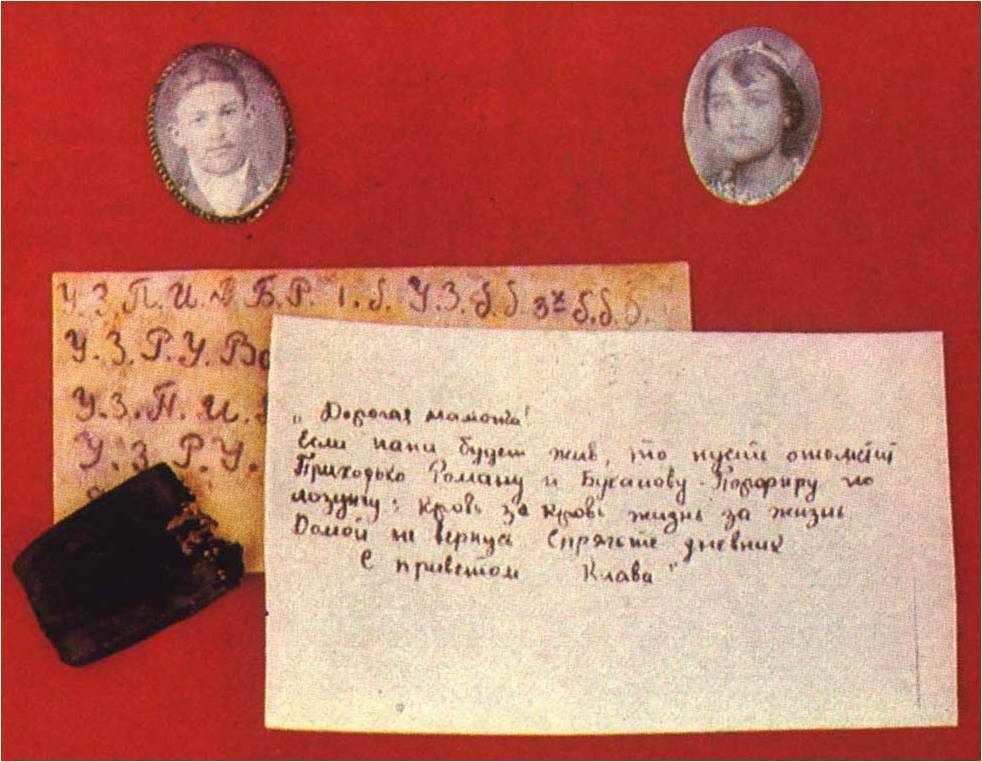 У.З. П.И. Б.Р. 1.б. У.З.б.б. 3х б.б.б.
У.З.Р.У. Во
У.З.П.И.
У.З.Р.У.
„Дорогая мамочка!
Если папа будет жив, то пусть отомстит
Приходько Роману и Буханову Порфиру по
лозунгу: кровь за кровь жизнь за жизнь
Домой не вернусь Спрячьте дневник
С приветом Клава"